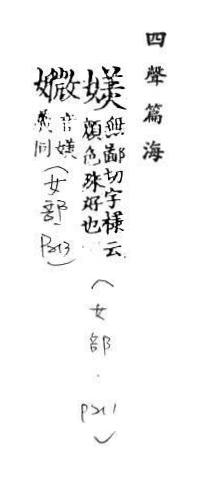 四聲篇海
媄
無鄙切字樣云
顏色殊好也
（女部．P211）
音媄
義同（女部 P213）